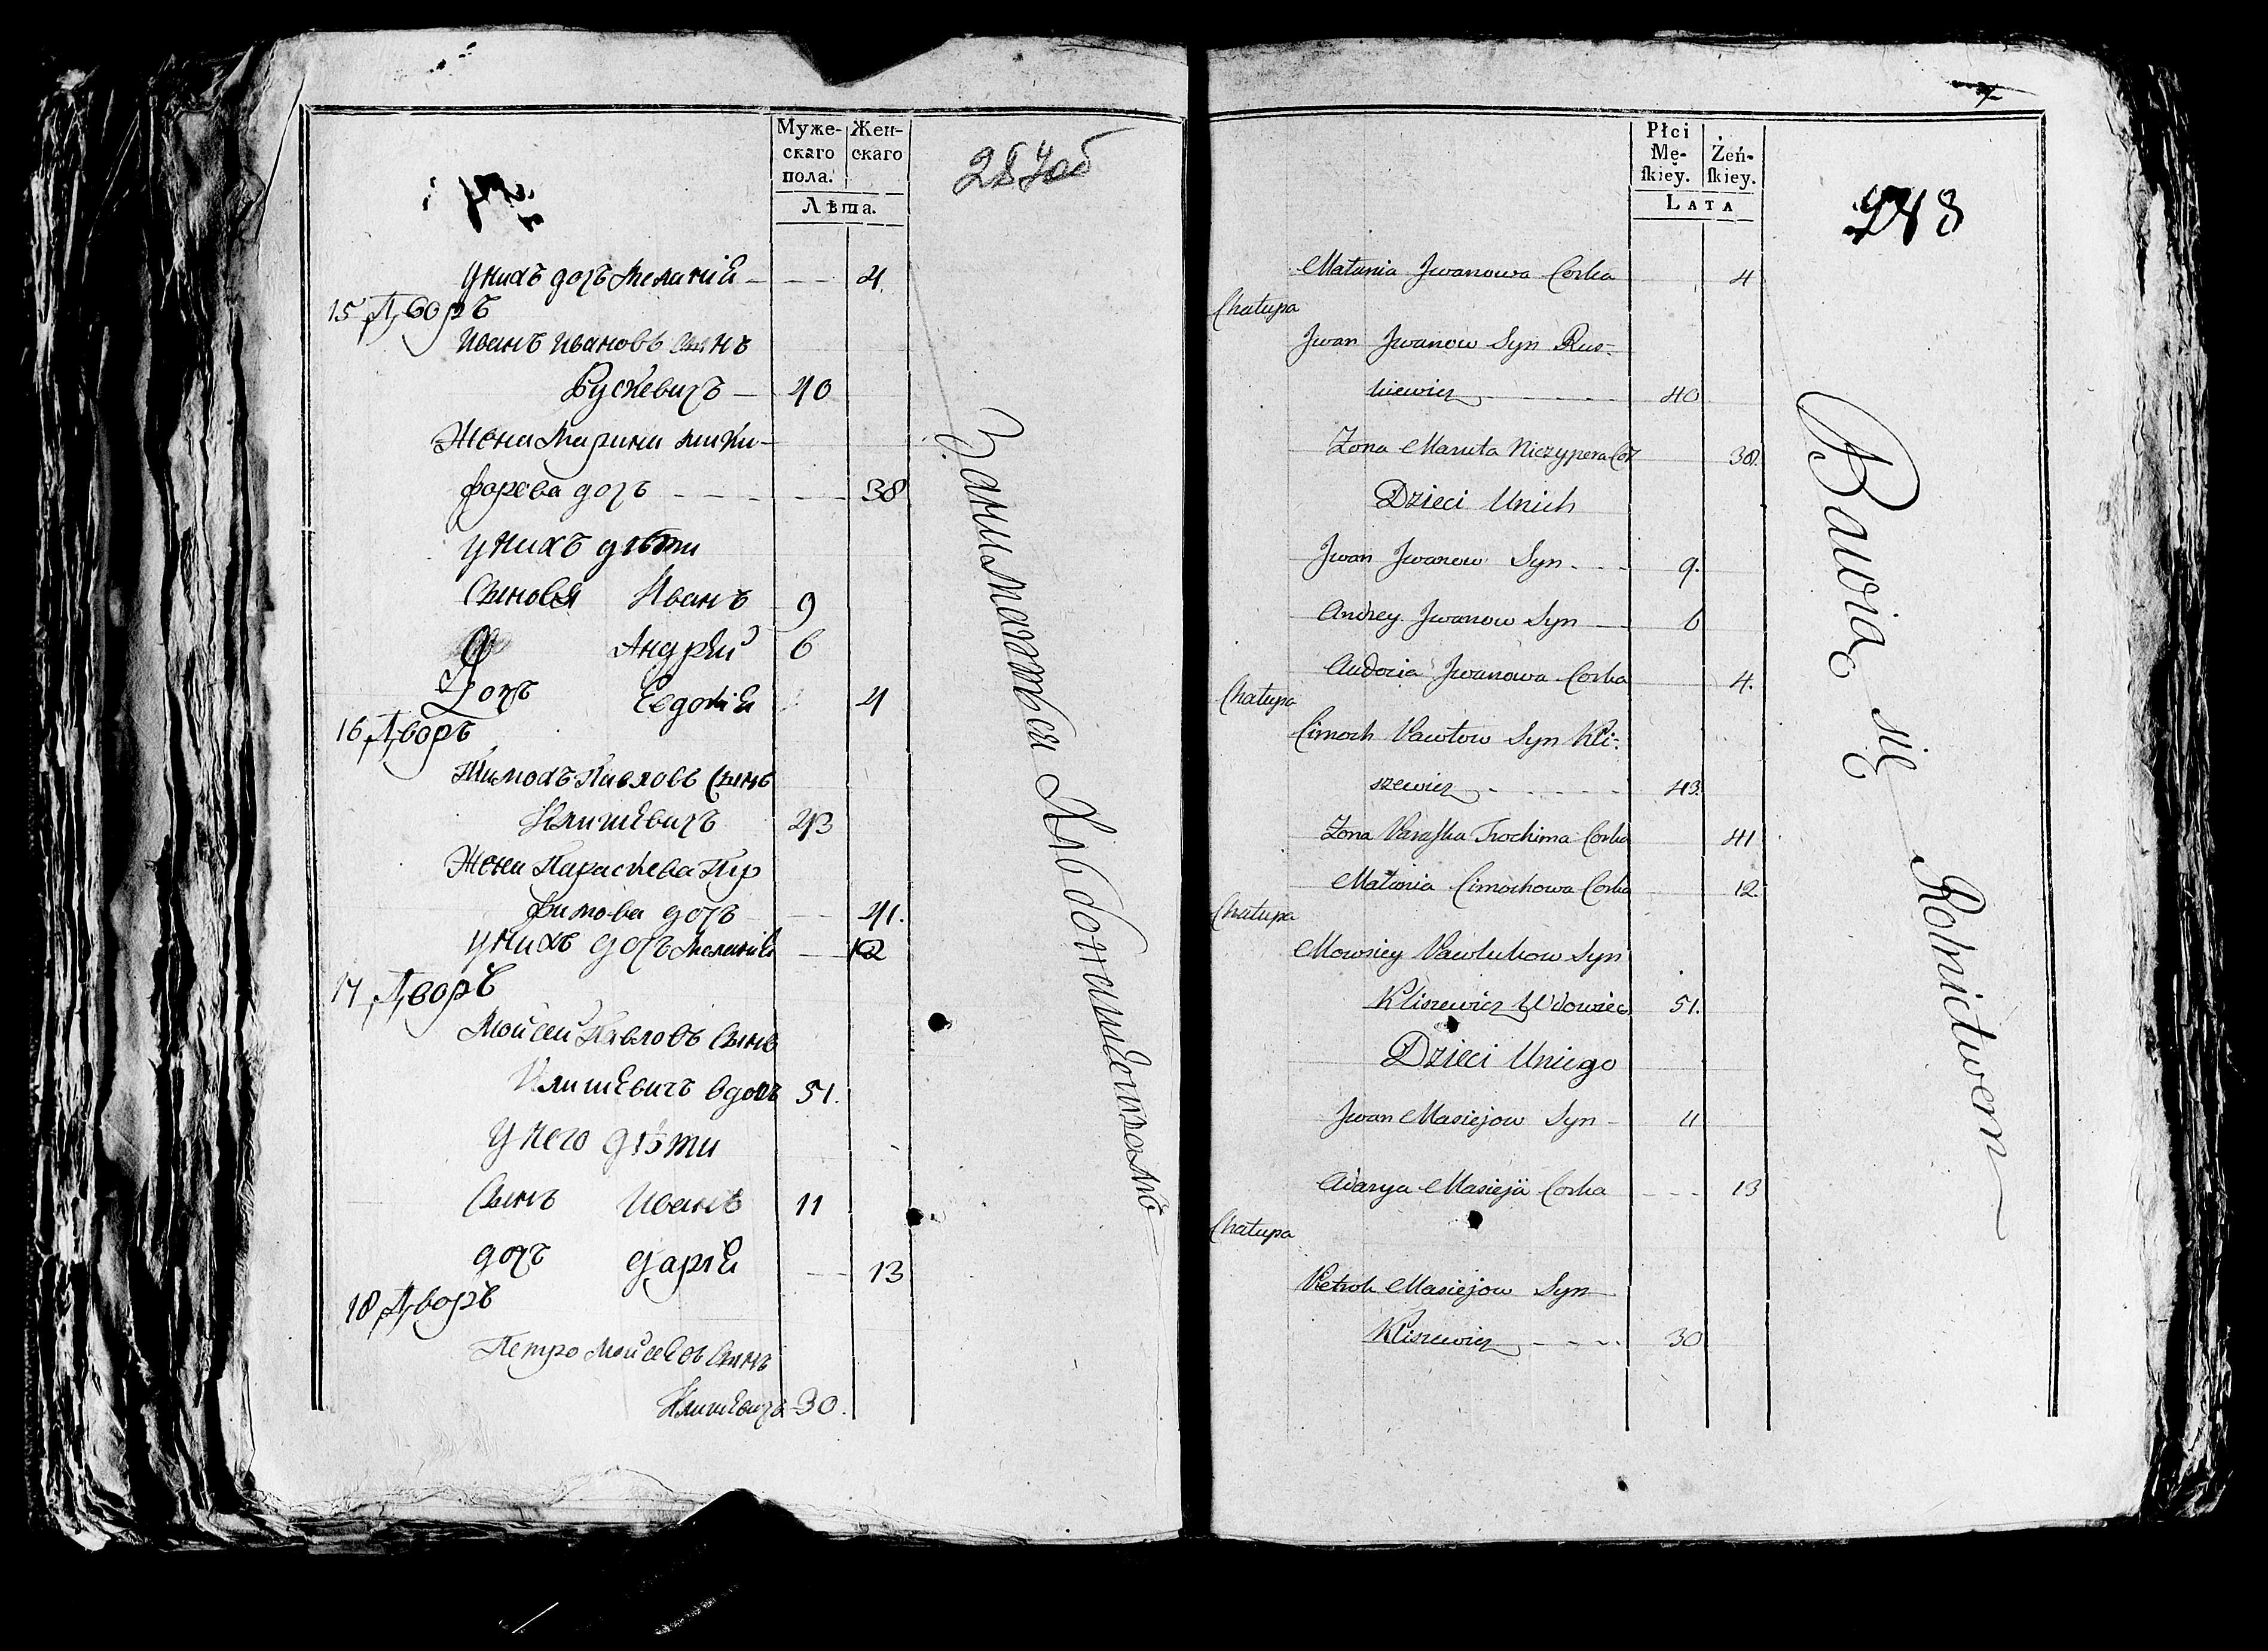 Муже-
скаго
пола.
Жен-
скаго
Лѣта.
287об
У нихъ дочь Меланія - 4
15 Дворъ
Иванъ Ивановъ Сынъ
Рускевичъ — 40
Жена Марина Ники-
форова дочь - - - 38
у нихъ дѣти
Сыновя Иванъ 9
Андрей 6
Дочь Евдокія 4
16 Дворъ
Тимохъ Павловъ Сынъ
Клишевичъ 43
Жена Параскева Тро
фимова дочь 41.
у нихъ дочь Меланія 12
17 Дворъ
Мойсей Павловъ Сынъ
Клишевичъ вдовъ 51.
У него дѣти
Сынъ Иванъ 11
дочь Дарія 13
18 Дворъ
Петро Мойсеевъ Сынъ
Клишевичъ 30.
Занимаются Хлѣбопашествомъ
Płci
Mę-
ſkiey.
Żeń-
ſkiey.
LATA
248
Małania Jwanowa Corka 4
Chałupa
Jwan Jwanow Syn Rus-
kiewicz 40
Zona Maruta Niczypera Cor 38.
Dzieci Unich
Jwan Jwanow Syn 9.
Andrey Jwanow Syn 6
Audocia Jwanowa Corka 4.
Chałupa
Cimoch Pawłow Syn Kli-
szewicz 43.
Zona Paraſka Trochima Corka 41
Małania Cimochowa Corka 12.
Chałupa
Mowsiey Pawlukow Syn
Kliszewicz Wdowiec 51.
Dzieci Uniego
Jwan Masiejow Syn 11
Adarya Masieja Corka 13
Chałupa
Pietroh Masiejow Syn
Kliszewicz 30
Bawią się Rolnictwem